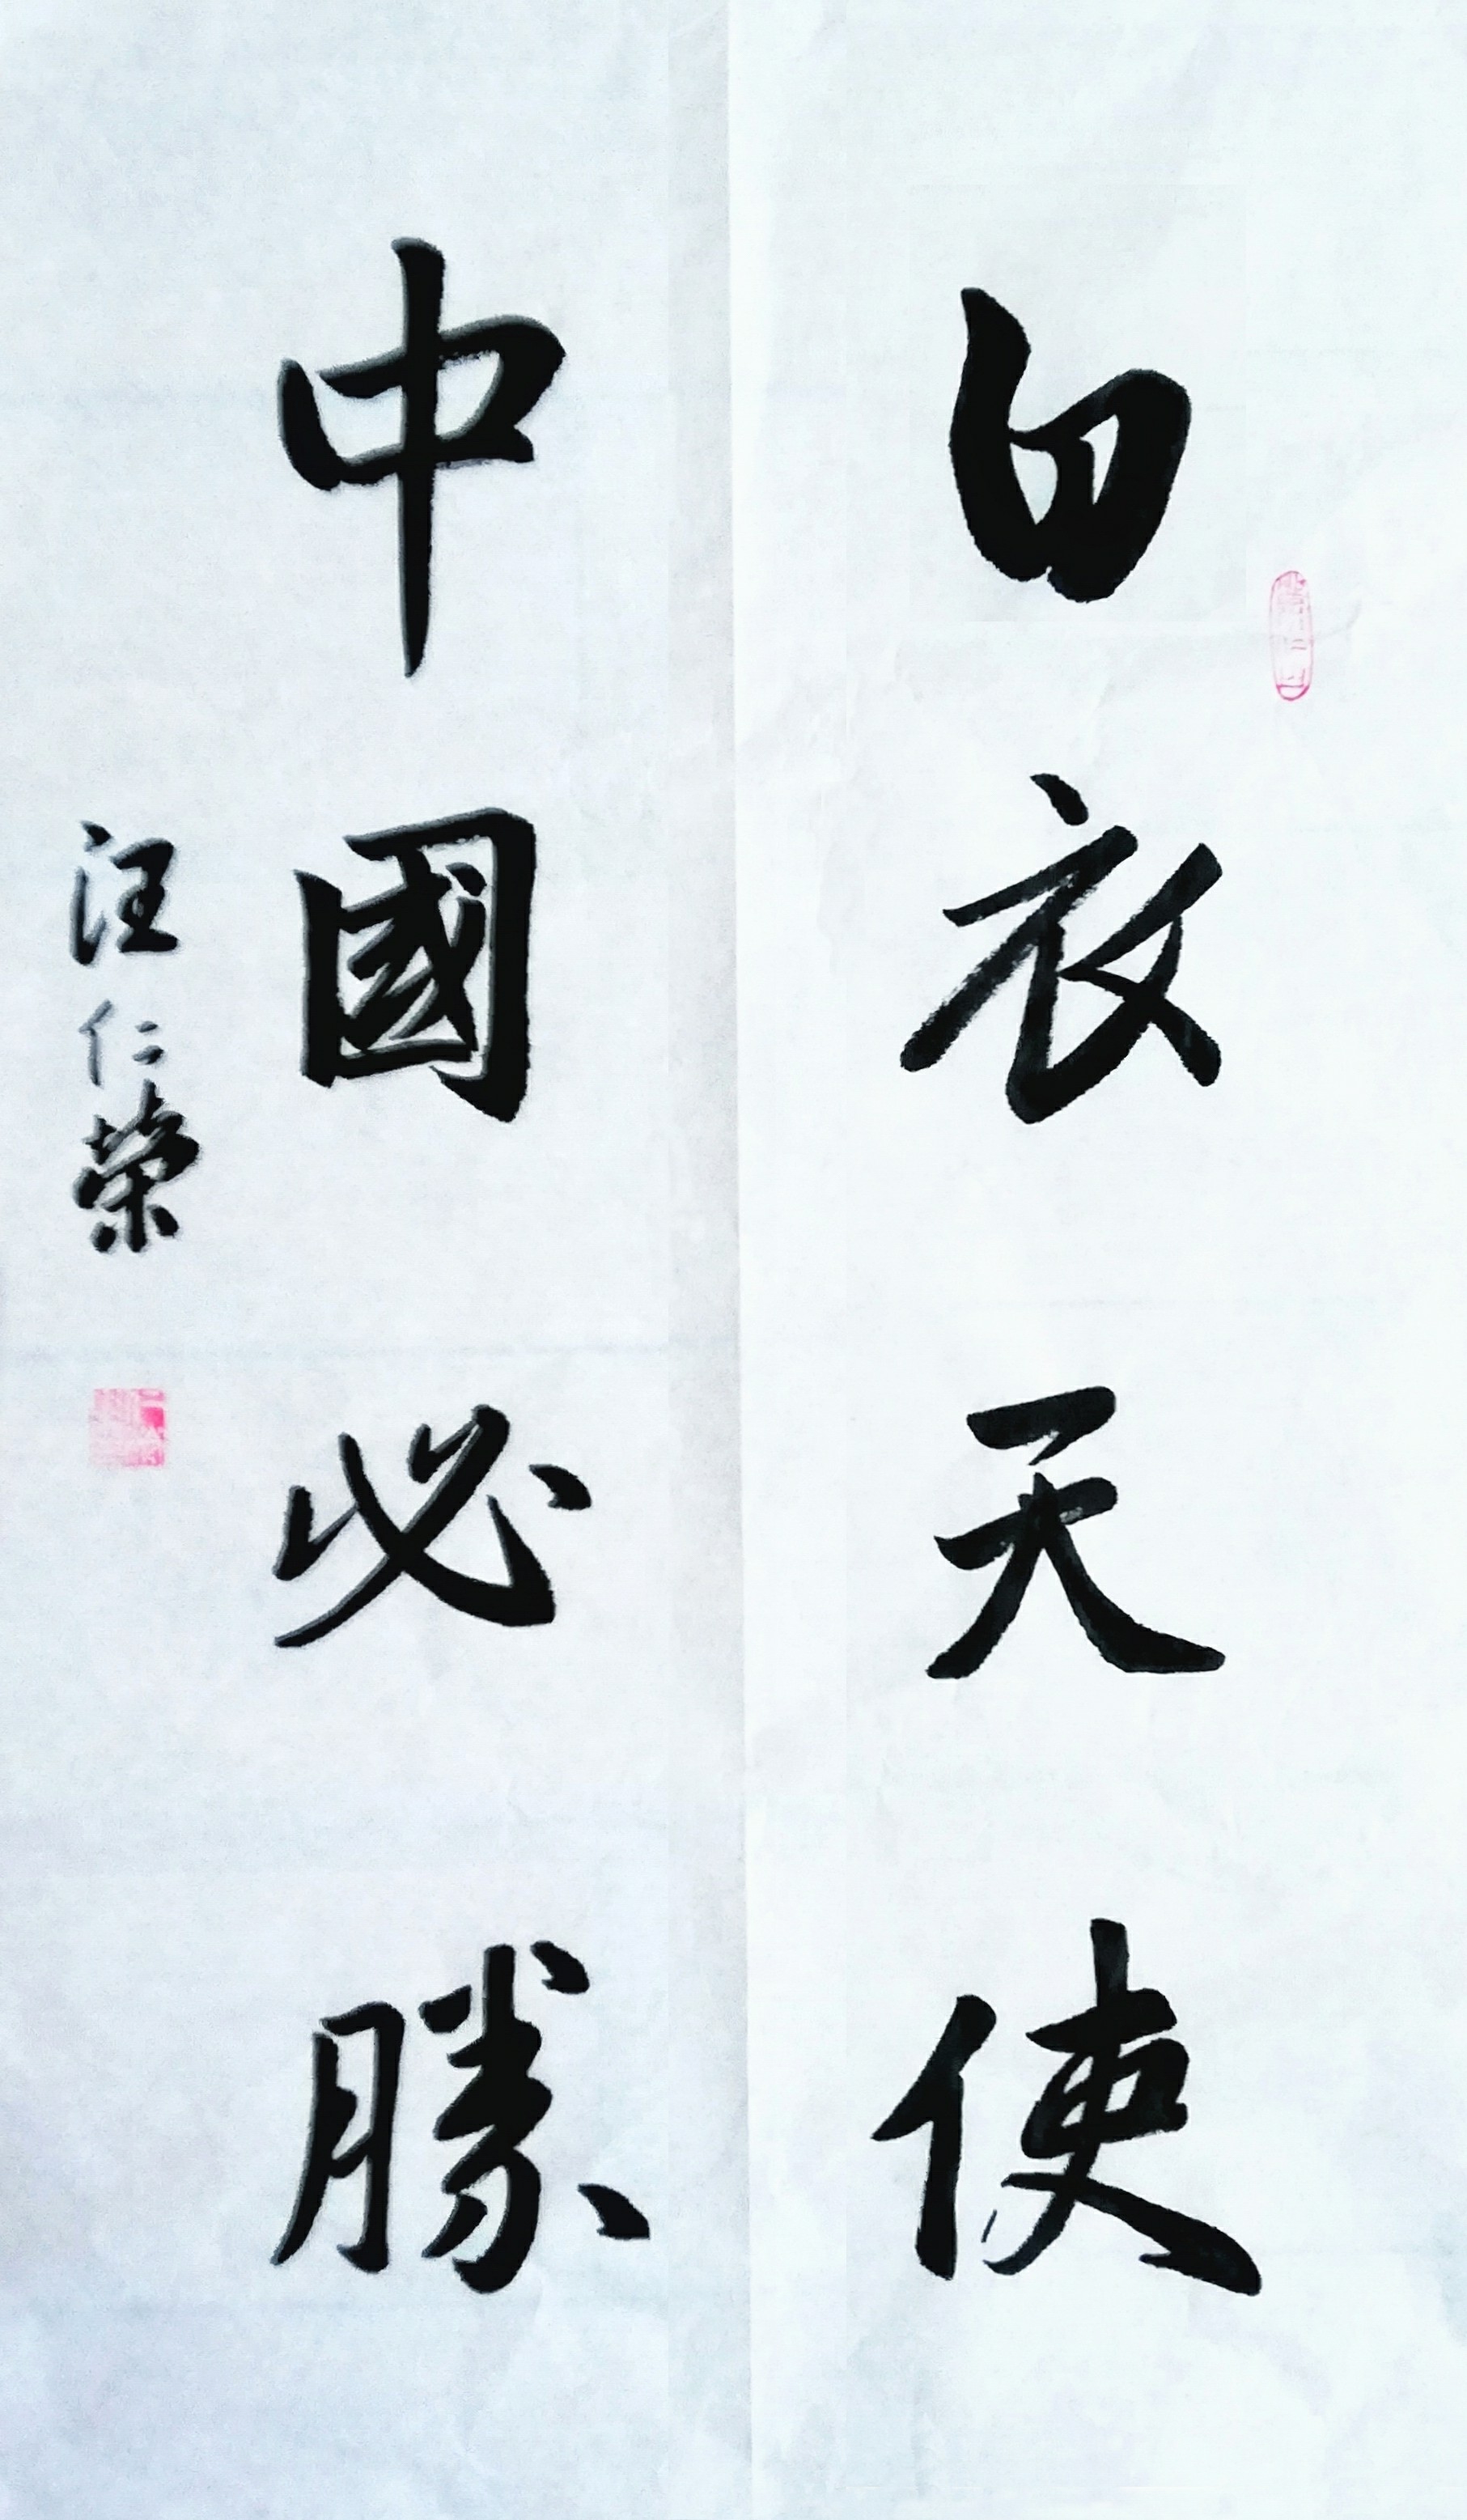 白衣天使
中國必勝
汪仁榮